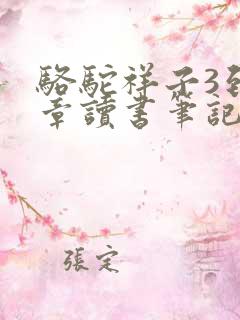 駱駝祥子3到
章讀書筆記
張定